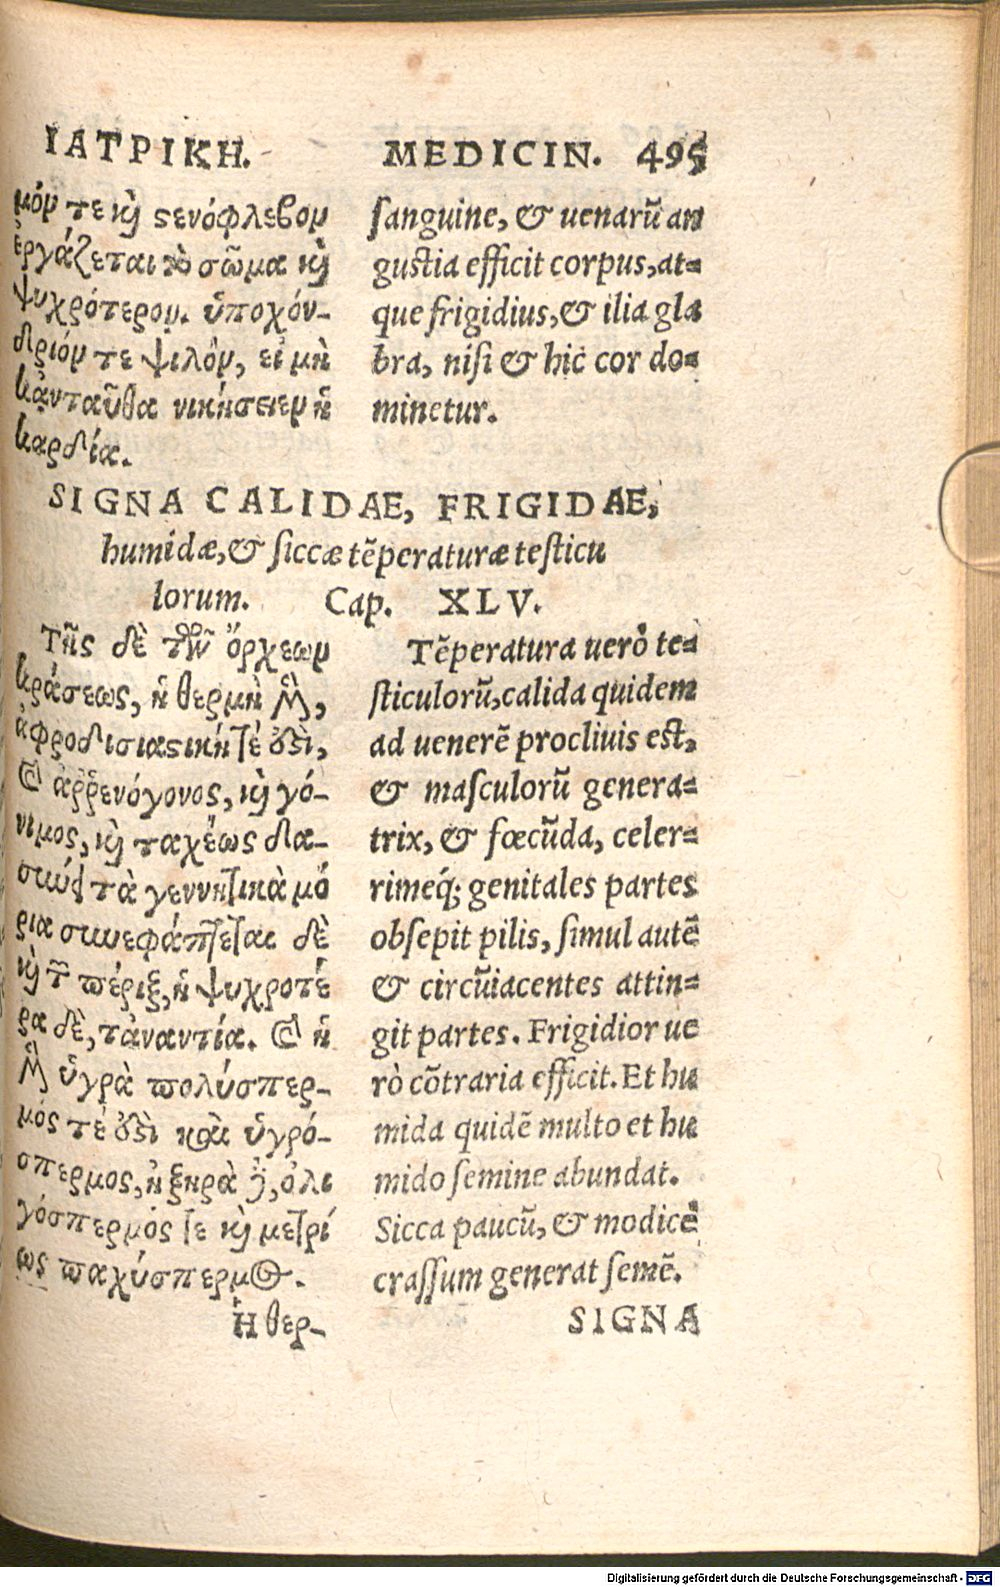 ΙΑΤΡΙΚΗ.
μόν τε κὶ στενόφλεβον
ἐργάζεται τὸ σῶμα κὶ
ψυχρότερον. ὑποχόν-
δριόν τε ψιλόν, εἰ μὴ
κἀνταῦθα νικήσειεν ἡ
καρδία.
MEDICIN. 495
sanguine, & uenarũ an
gustia efficit corpus, at=
que frigidius, & ilia gla
bra, nisi & hic cor do=
minetur.
SIGNA CALIDAE, FRIGIDAE,
humidæ, & siccæ tẽperaturæ testicu
lorum. Cap. XLV.
Τῆς δὲ τῶν ὄρχεων
κράσεως, ἡ θερμὴ μὲν,
ἀφροδισιαστική τέ ὅτι,
καὶ ἀῤῥενόγονος, κὶ γό-
νιμος, κὶ ταχέως δα-
σύνει τὰ γεννητικὰ μό
ρια συνεφάπτεται δὲ
κὶ τῶν πέριξ, ἡ ψυχροτέ
ρα δὲ, τἀναντία. καὶ ἡ
μὲν ὑγρὰ πολύσπερ-
μός τέ ὅτι καὶ ὑγρό-
σπερμος, ἡ ξηρὰ δὲ, ὀλι
γόσπερμός τε κὶ μετρί
ως παχύσπερμος.
Ἡ θερ-
Tẽperatura uerò te=
sticulorũ, calida quidem
ad uenerẽ procliuis est,
& masculorũ genera=
trix, & fœcũda, celer=
rimeq́; genitales partes
obsepit pilis, simul autẽ
& circũiacentes attin=
git partes. Frigidior ue
rò cõtraria efficit. Et hu
mida quidẽ multo et hu
mido semine abundat.
Sicca paucũ, & modicè
crassum generat semẽ.
SIGNA
Digitalisierung gefördert durch die Deutsche Forschungsgemeinschaft - DFG